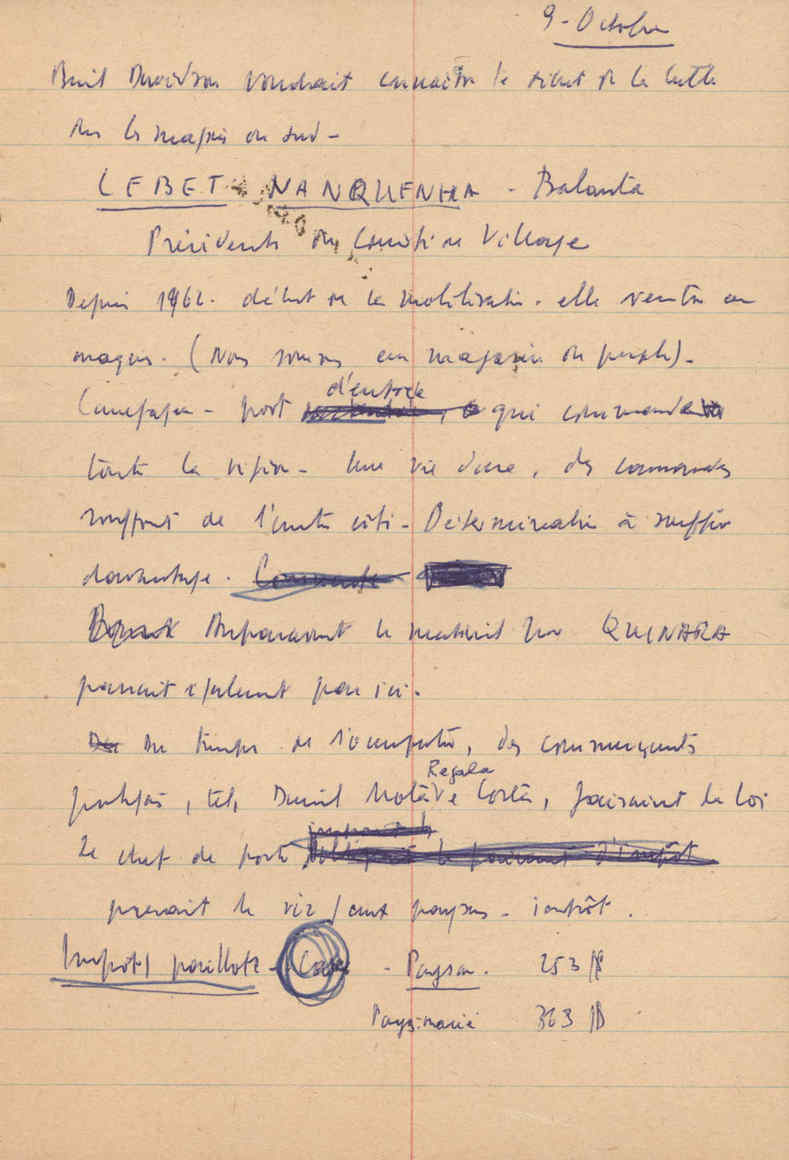 9 - Octobre
Basil Davidson voudrait connaître le début de la lutte
dans les du sud -
LEBET NANQUENHA - Balanta
Présidente du Comité de Village
Depuis 1962. début de la mobilisation. elle rentre au
maquis. (Nous sommes au magasin du peuple) -
port d'entrée qui commande
toute la région - Une vie dure, des camarades
de l'autre côté - Détermination à souffrir
davantage.
Auparavant le matériel pour QUINARA
passait également par ici.
Du temps de l'occupation, des commerçants
portugais, tel, Regala faisaient la loi
Le chef de poste
prenait le riz / aux paysans - impôt.
Impôt / paillote - Case - Paysan. 253
Pays. marié 363